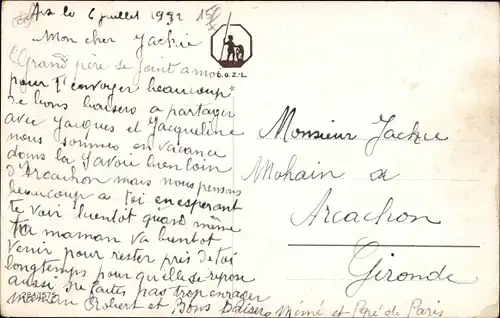 le 6 juillet 1932
Mon cher Jackie
Grand père se joint a moi
pour t'envoyer beaucoup
de bons baisers a partager
avec Jacques et Jacqueline
nous sommes en vacance
dans la Savoie bien loin
d'Arcachon mais nous pensons
beaucoup a toi en esperant
te voir bientôt quand même
ta maman va bientot
venir pour rester près de toi
longtemps pour qu'elle se repose
aussi ne faites pas trop enrager
maman Robert et Bons Baisers Mémé et Pépé de Paris
Monsieur Jackie
Mohain a
Arcachon
Gironde